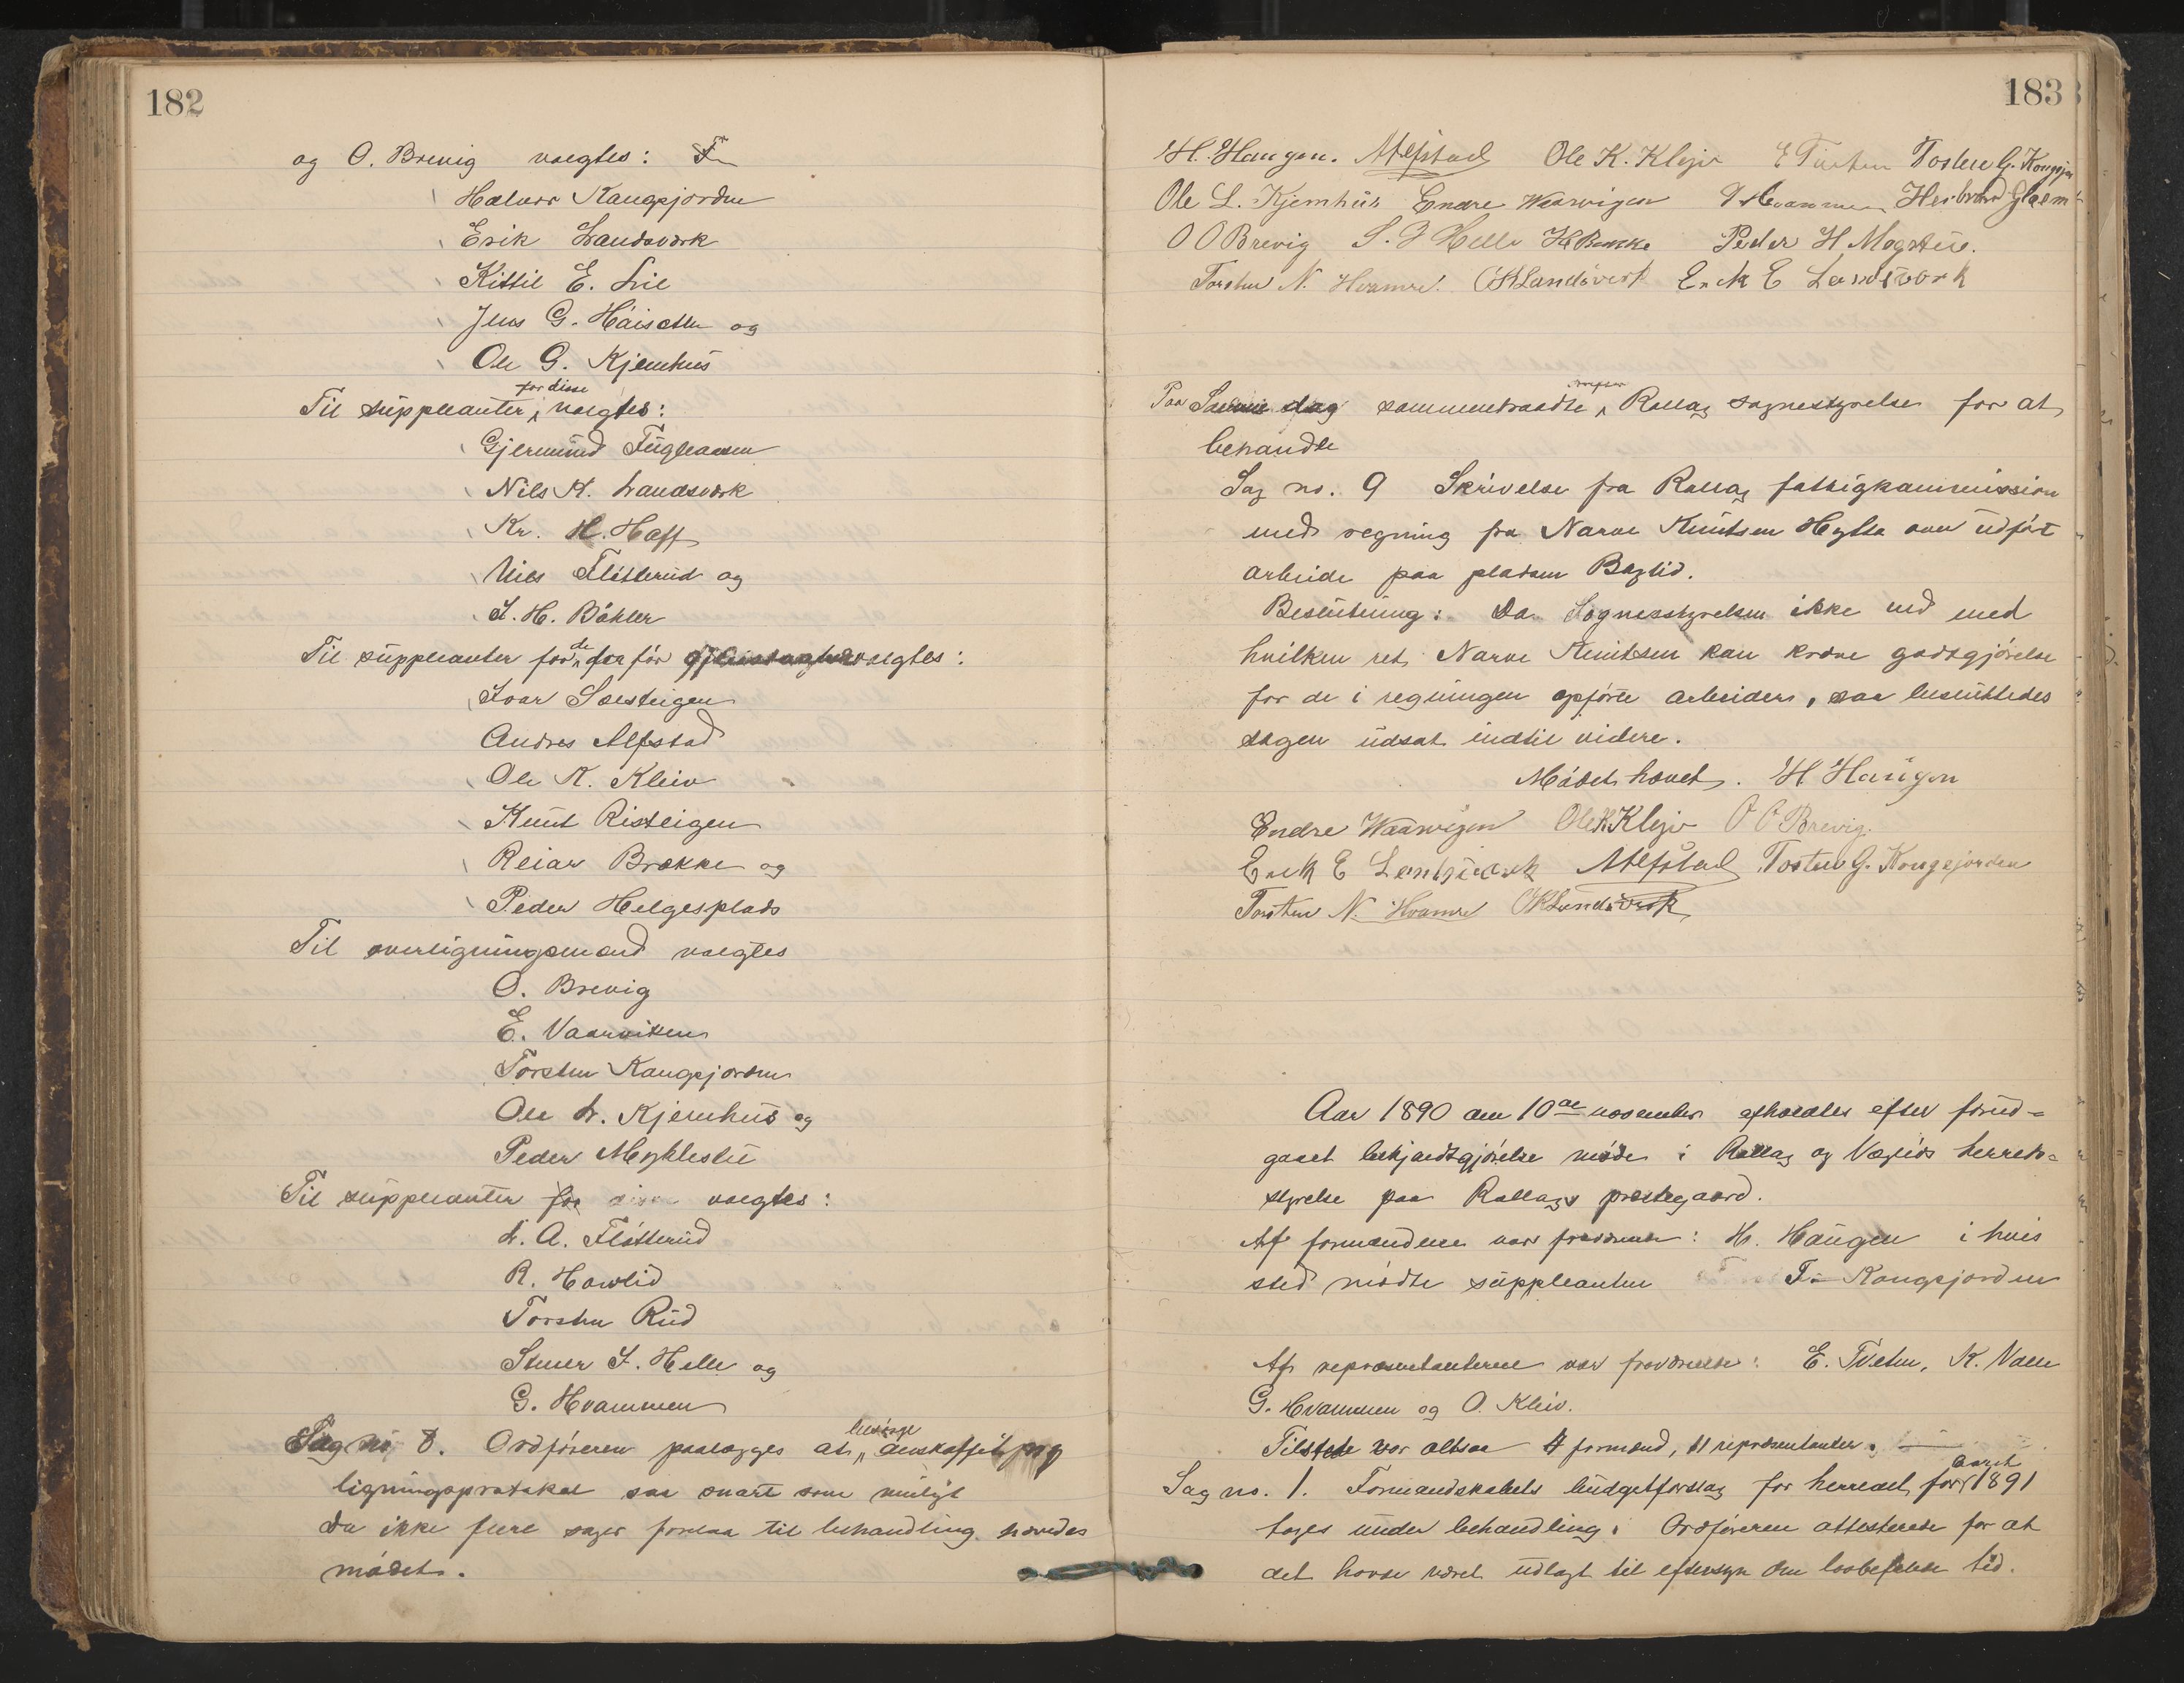 182
og O. Brevig valgtes:
Halvor Kongsjorden
Erik Landsverk
Kittil E. Lie
Jens G. Håisetter og
Ole G. Kjemhus
for disse
Til suppleanter valgtes:
Gjermund Fugleaasen
Nils K. Landsverk
Kr. H. Hoff
Nils Fløtterud og
I. H. Bøhler
Til suppleanter for de før valgtes:
Ivar Solsteigen
Andres Alfstad
Ole K. Kleiv
Knut Risteigen
Reiar Brække og
Peder Helgesplads
Til overligningsmænd valgtes
O. Brevig
E. Vaarviken
Torsten Kongsjorden
Ole L. Kjemhus og
Peder Mykkestu
Til suppleanter for disse valgtes:
L. A. Fløtterud
R. Haavlid
Torsten Rud
Stener I. Helle og
G. Hvammen
Sag no 8. Ordføreren paalægges at besørge anskaffet ny
ligningsprotokol saa snart som muligt
Da ikke flere sager forelaa til behandling hævedes
mødet.
183
H. Haugen. A Alfstad Ole K. Klejv E Tveten Tosten G. Kongsjor
Ole L. Kjemhus Endre Waarvigen G Hvammen Herbrand Glaim
O O Brevig S. I Helle H Brække Peder H Mogstue.
Torsten N. Hvamre. O K Landsverk Erik E Landsverk
Paa Samme dag sammentraadte Rollag sognestyrelse for at
behandle
Sag no. 9 Skrivelse fra Rollag fattigkommission
med regning fra Narve Knutsen Hytta over udført
arbeide paa pladsen Baglid.
Beslutning: Da Sognestyrelsen ikke ved med
hvilken ret Narve Knutsen kan kræve godtgjørelse
for de i regningen opførte arbeider, saa besluttedes
sagen udsat indtil videre.
Mødet hævet. H Haugen
Endre Waarvigen Ole K Klejv O O Brevig.
Erik E Landsverk A Alfstad Tosten G. Kongsjorden
Torsten N. Hvamre O K Landsverk
Aar 1890 den 10de november afholdtes efter forud-
gaaet bekjendtgjørelse møde i Rollag og Veglids herreds-
styrelse paa Rollags prestegaard.
Af formændene var fraværende: H. Haugen i hvis
sted mødte suppleanten T. Kongsjorden
Af repræsentanterne var fraværende: E. Tveten, K. Vaen
G. Hvammen og O. Kleiv.
Tilstede var altsaa 4 formænd, 11 repræsentanter.
Sag no. 1. Formandskabets budgetforslag for herredet for aaret 1891
toges under behandling. Ordføreren attesterede for at
det havde været udlagt til eftersyn den lovbefalede tid.